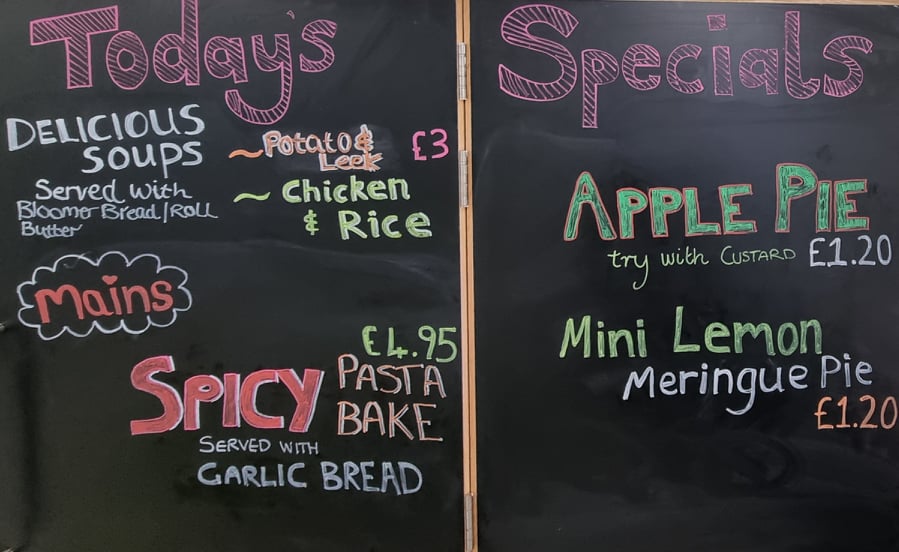 Today's Specials
DELICIOUS
SOUPS
Served with
Bloomer Bread/Roll
Butter
~Potato &
Leek
£3
~ Chicken
& Rice
Mains
£4.95
SPICY PASTA
BAKE
SERVED WITH
GARLIC BREAD
APPLE PIE
try with CUSTARD £1.20
Mini Lemon
Meringue Pie
£1.20